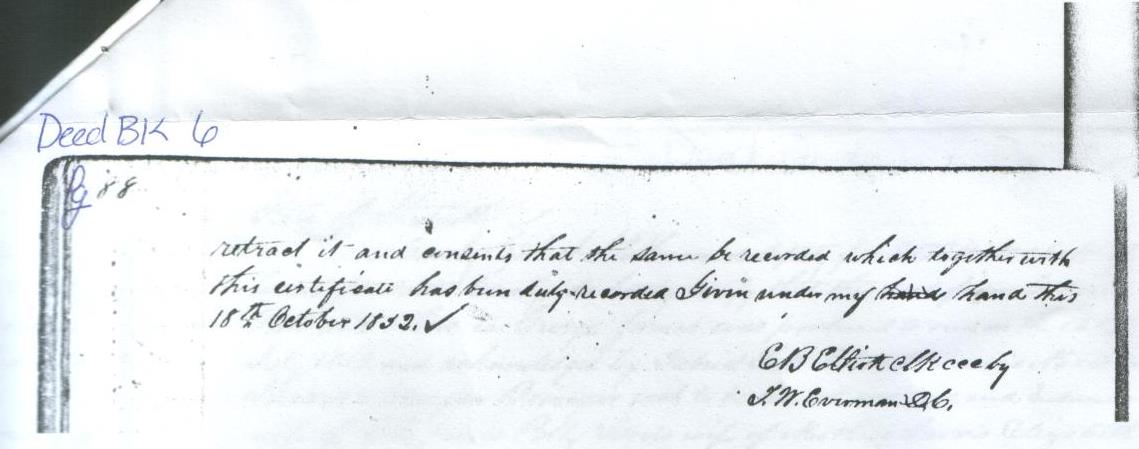 Deed BK 6
Pg 88
retract it and consents that the same be recorded which together with
this certificate has been duly recorded Given under my hand this
18th October 1852.
E B Elliott clk
T. W. Everman D.C.